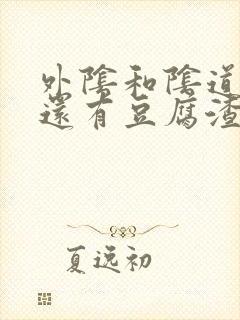 外陰和陰道
還有豆腐渣
夏逸初